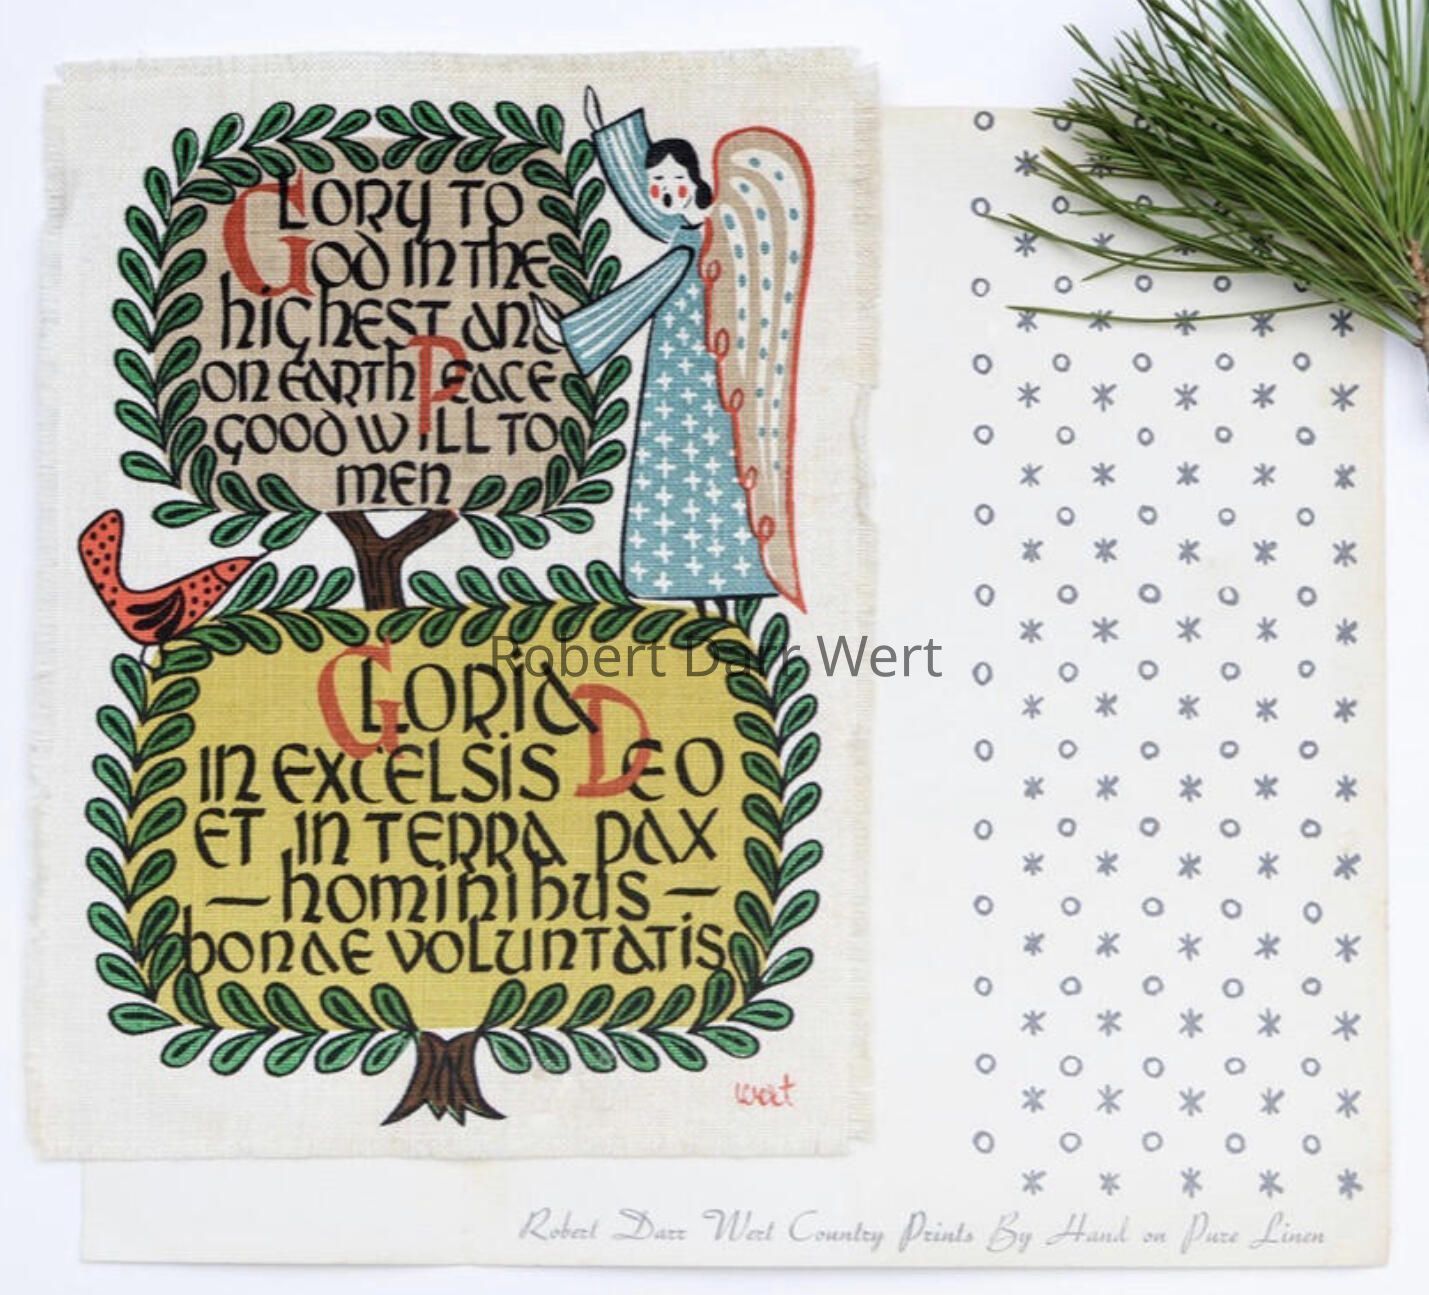 GLORY TO
GOD IN THE
highEST AND
ON EARTH PEACE
GOOD WILL TO
MEN
GLORIA
IN EXCELSIS DEO
ET IN TERRA PAX
— hominibus —
bonae voluntatis
wert
Robert Darr Wert
Robert Darr Wert Country Prints By Hand on Pure Linen